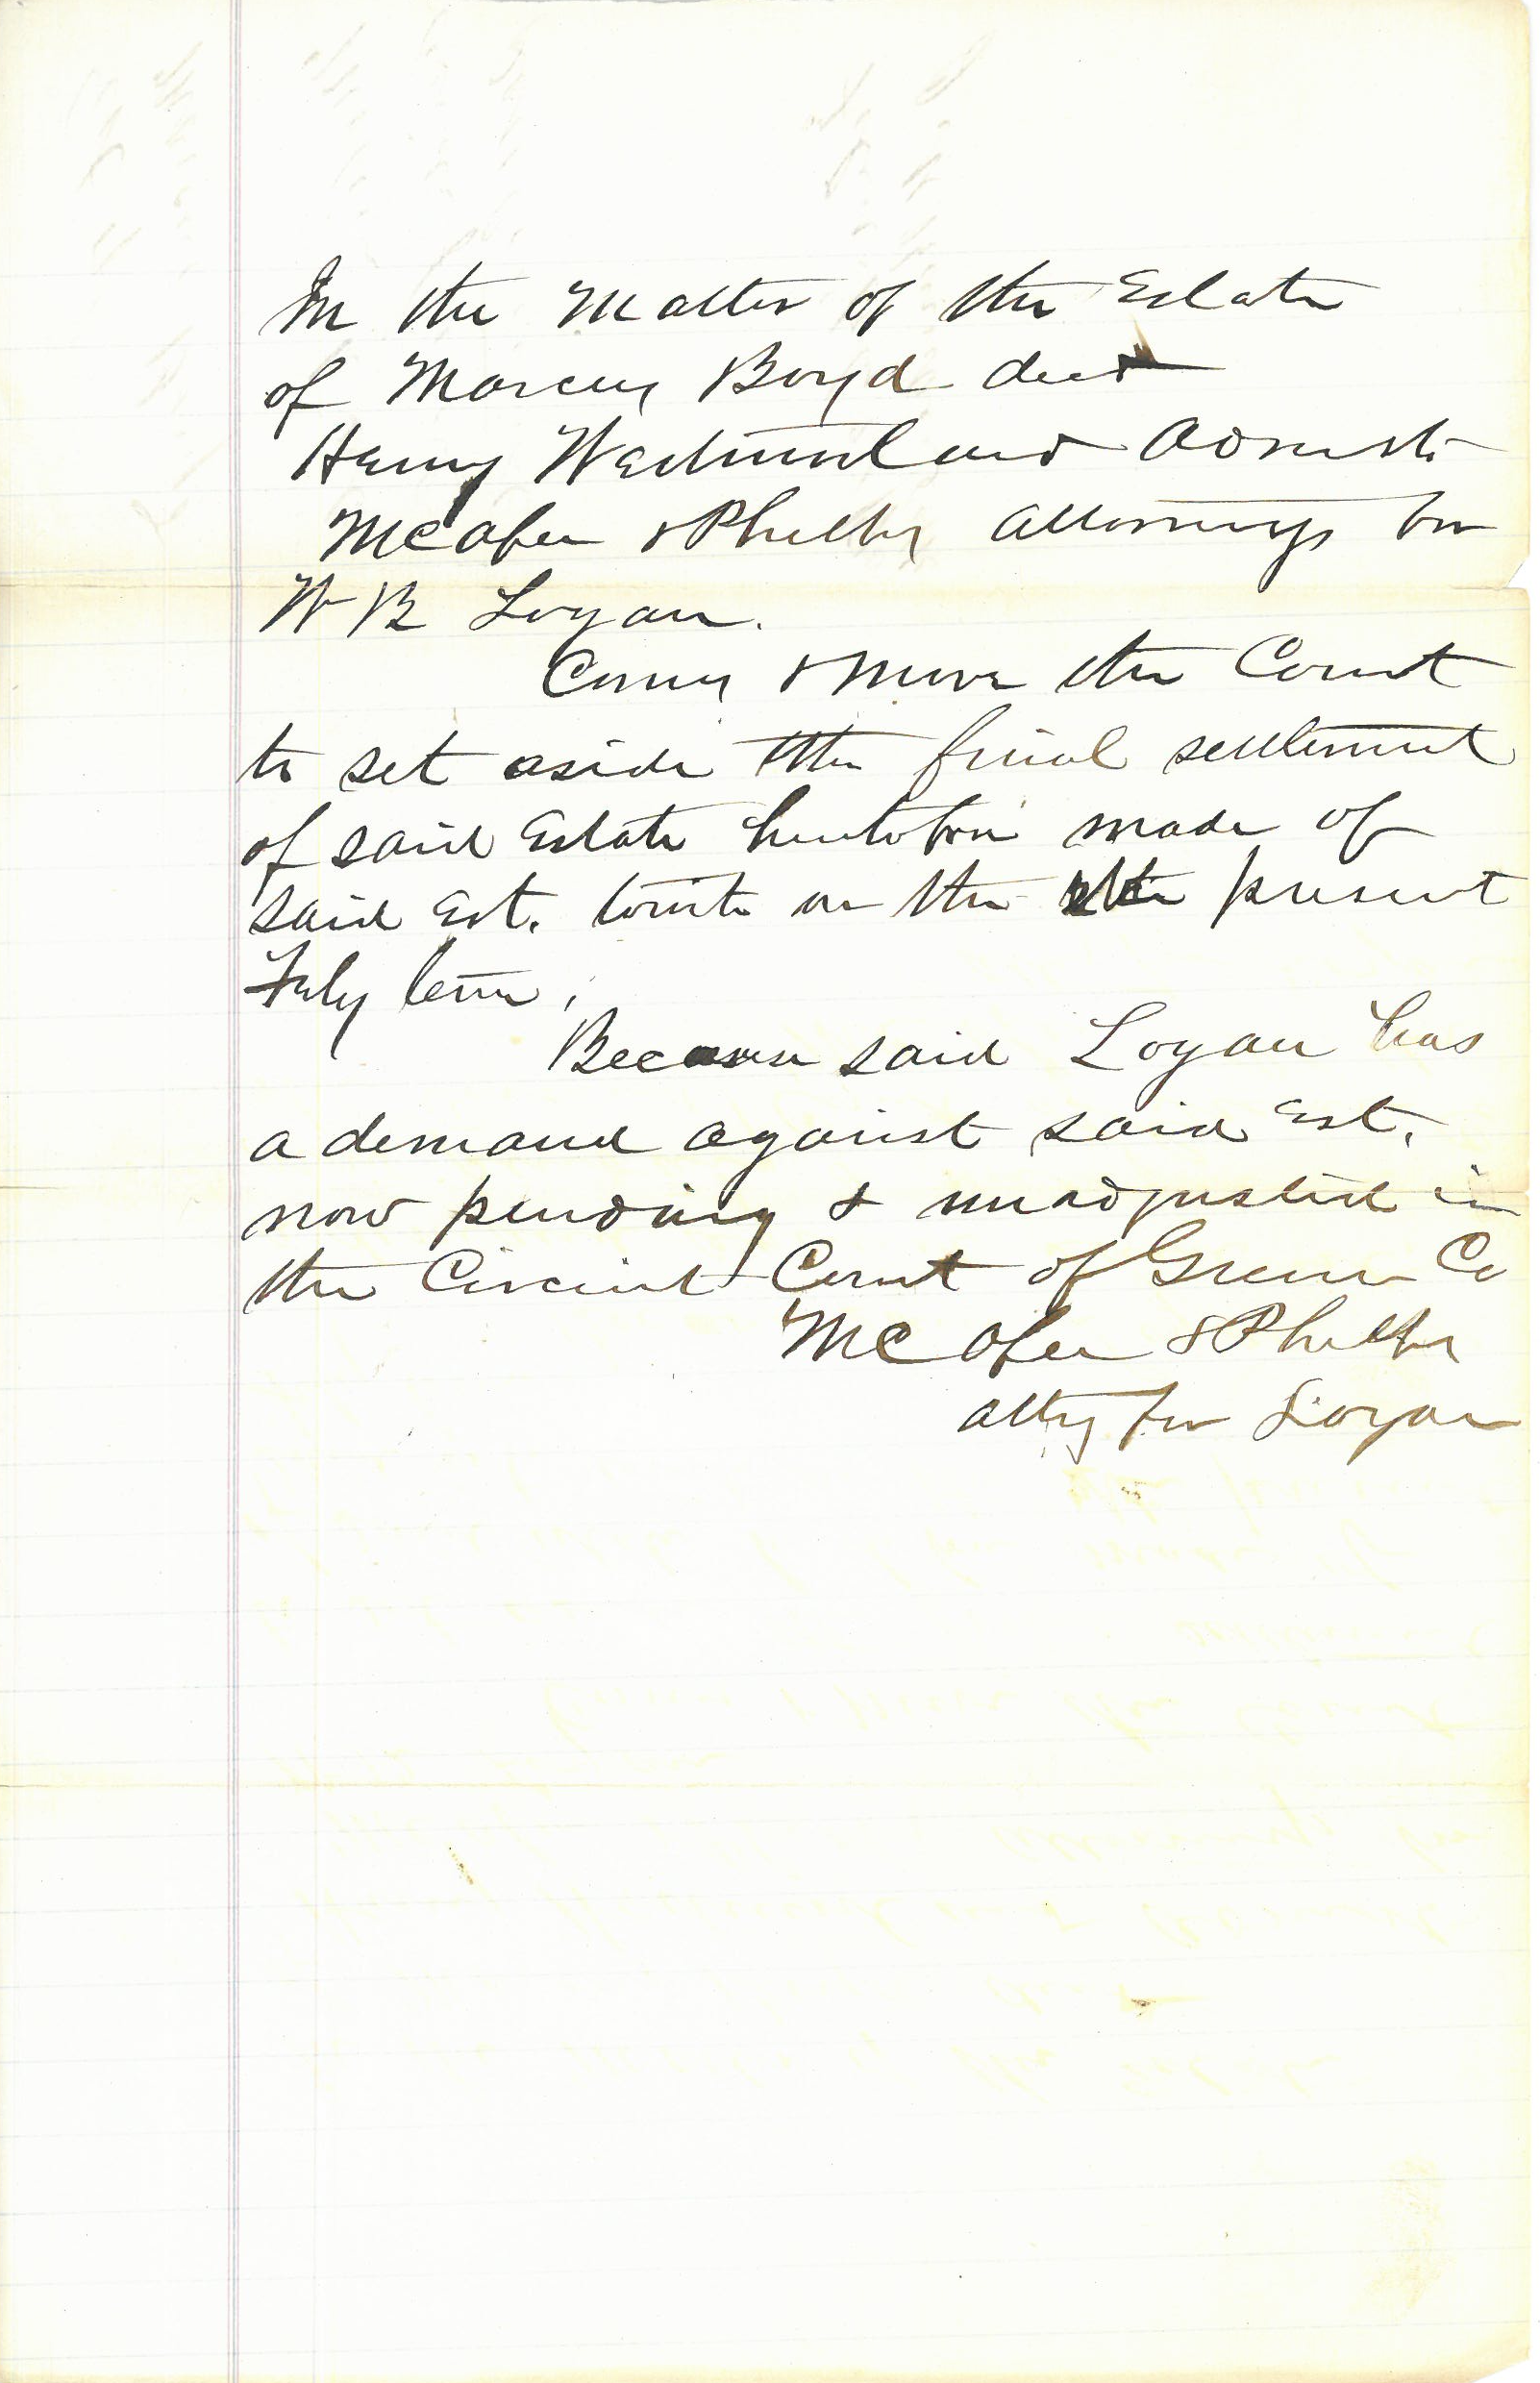 In the Matter of the Estate
of Marcus Boyd decd
Henry Westmoreland Admstr
McAfee & Phelps Attorneys for
W B Logan.
Comes & Move the Court
to set aside the final settlement
of said Estate heretofore made of
said Est. towit on the present
July term,
Because said Logan has
a demand against said Est.
now pending & unadjusted in
the Circuit Court of Greene Co
McAfee & Phelps
atty for Logan